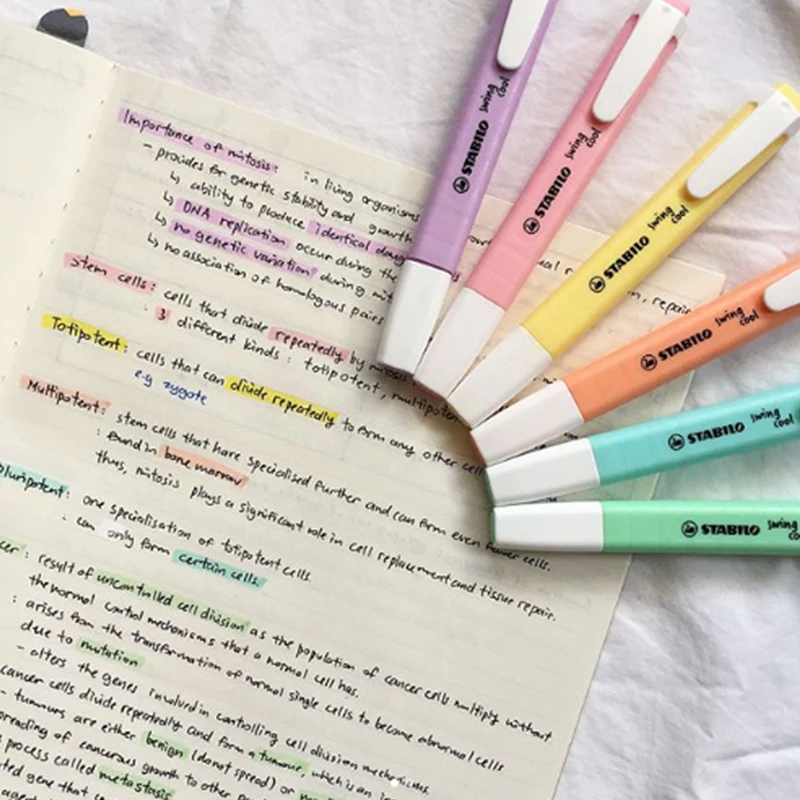 Importance of mitosis: in living organisms
- provides for genetic stability and growth
↳ ability to produce identical
↳ DNA replication occur during the
↳ no genetic variation during
↳ no association of homologous pairs
repair
Stem cells: cells that divide repeatedly by mitosis
: 3 different kinds: totipotent, multipotent
Totipotent: cells that can divide repeatedly to form any other cell
e.g zygote
Multipotent: stem cells that have specialised further and can form even fewer cells.
: found in bone marrow
thus, mitosis plays a significant role in cell replacement and tissue repair.
pluripotent: one specialisation of totipotent cells.
: can only form certain cells.
result of uncontrolled cell division as the population of cancer cells multiply without
the normal control mechanisms that a normal cell has.
: arises from the transformation of normal single cells to become abnormal cells
due to mutation
- alters the genes involved in controlling cell division mechanisms.
cancer cells divide repeatedly and form a tumour, which is an
- tumours are either benign (do not spread) or
of cancerous growth to other
process called metastasis
gene that
STABILO swing cool
STABILO swing cool
STABILO swing cool
STABILO swing cool
STABILO swing cool
STABILO swing